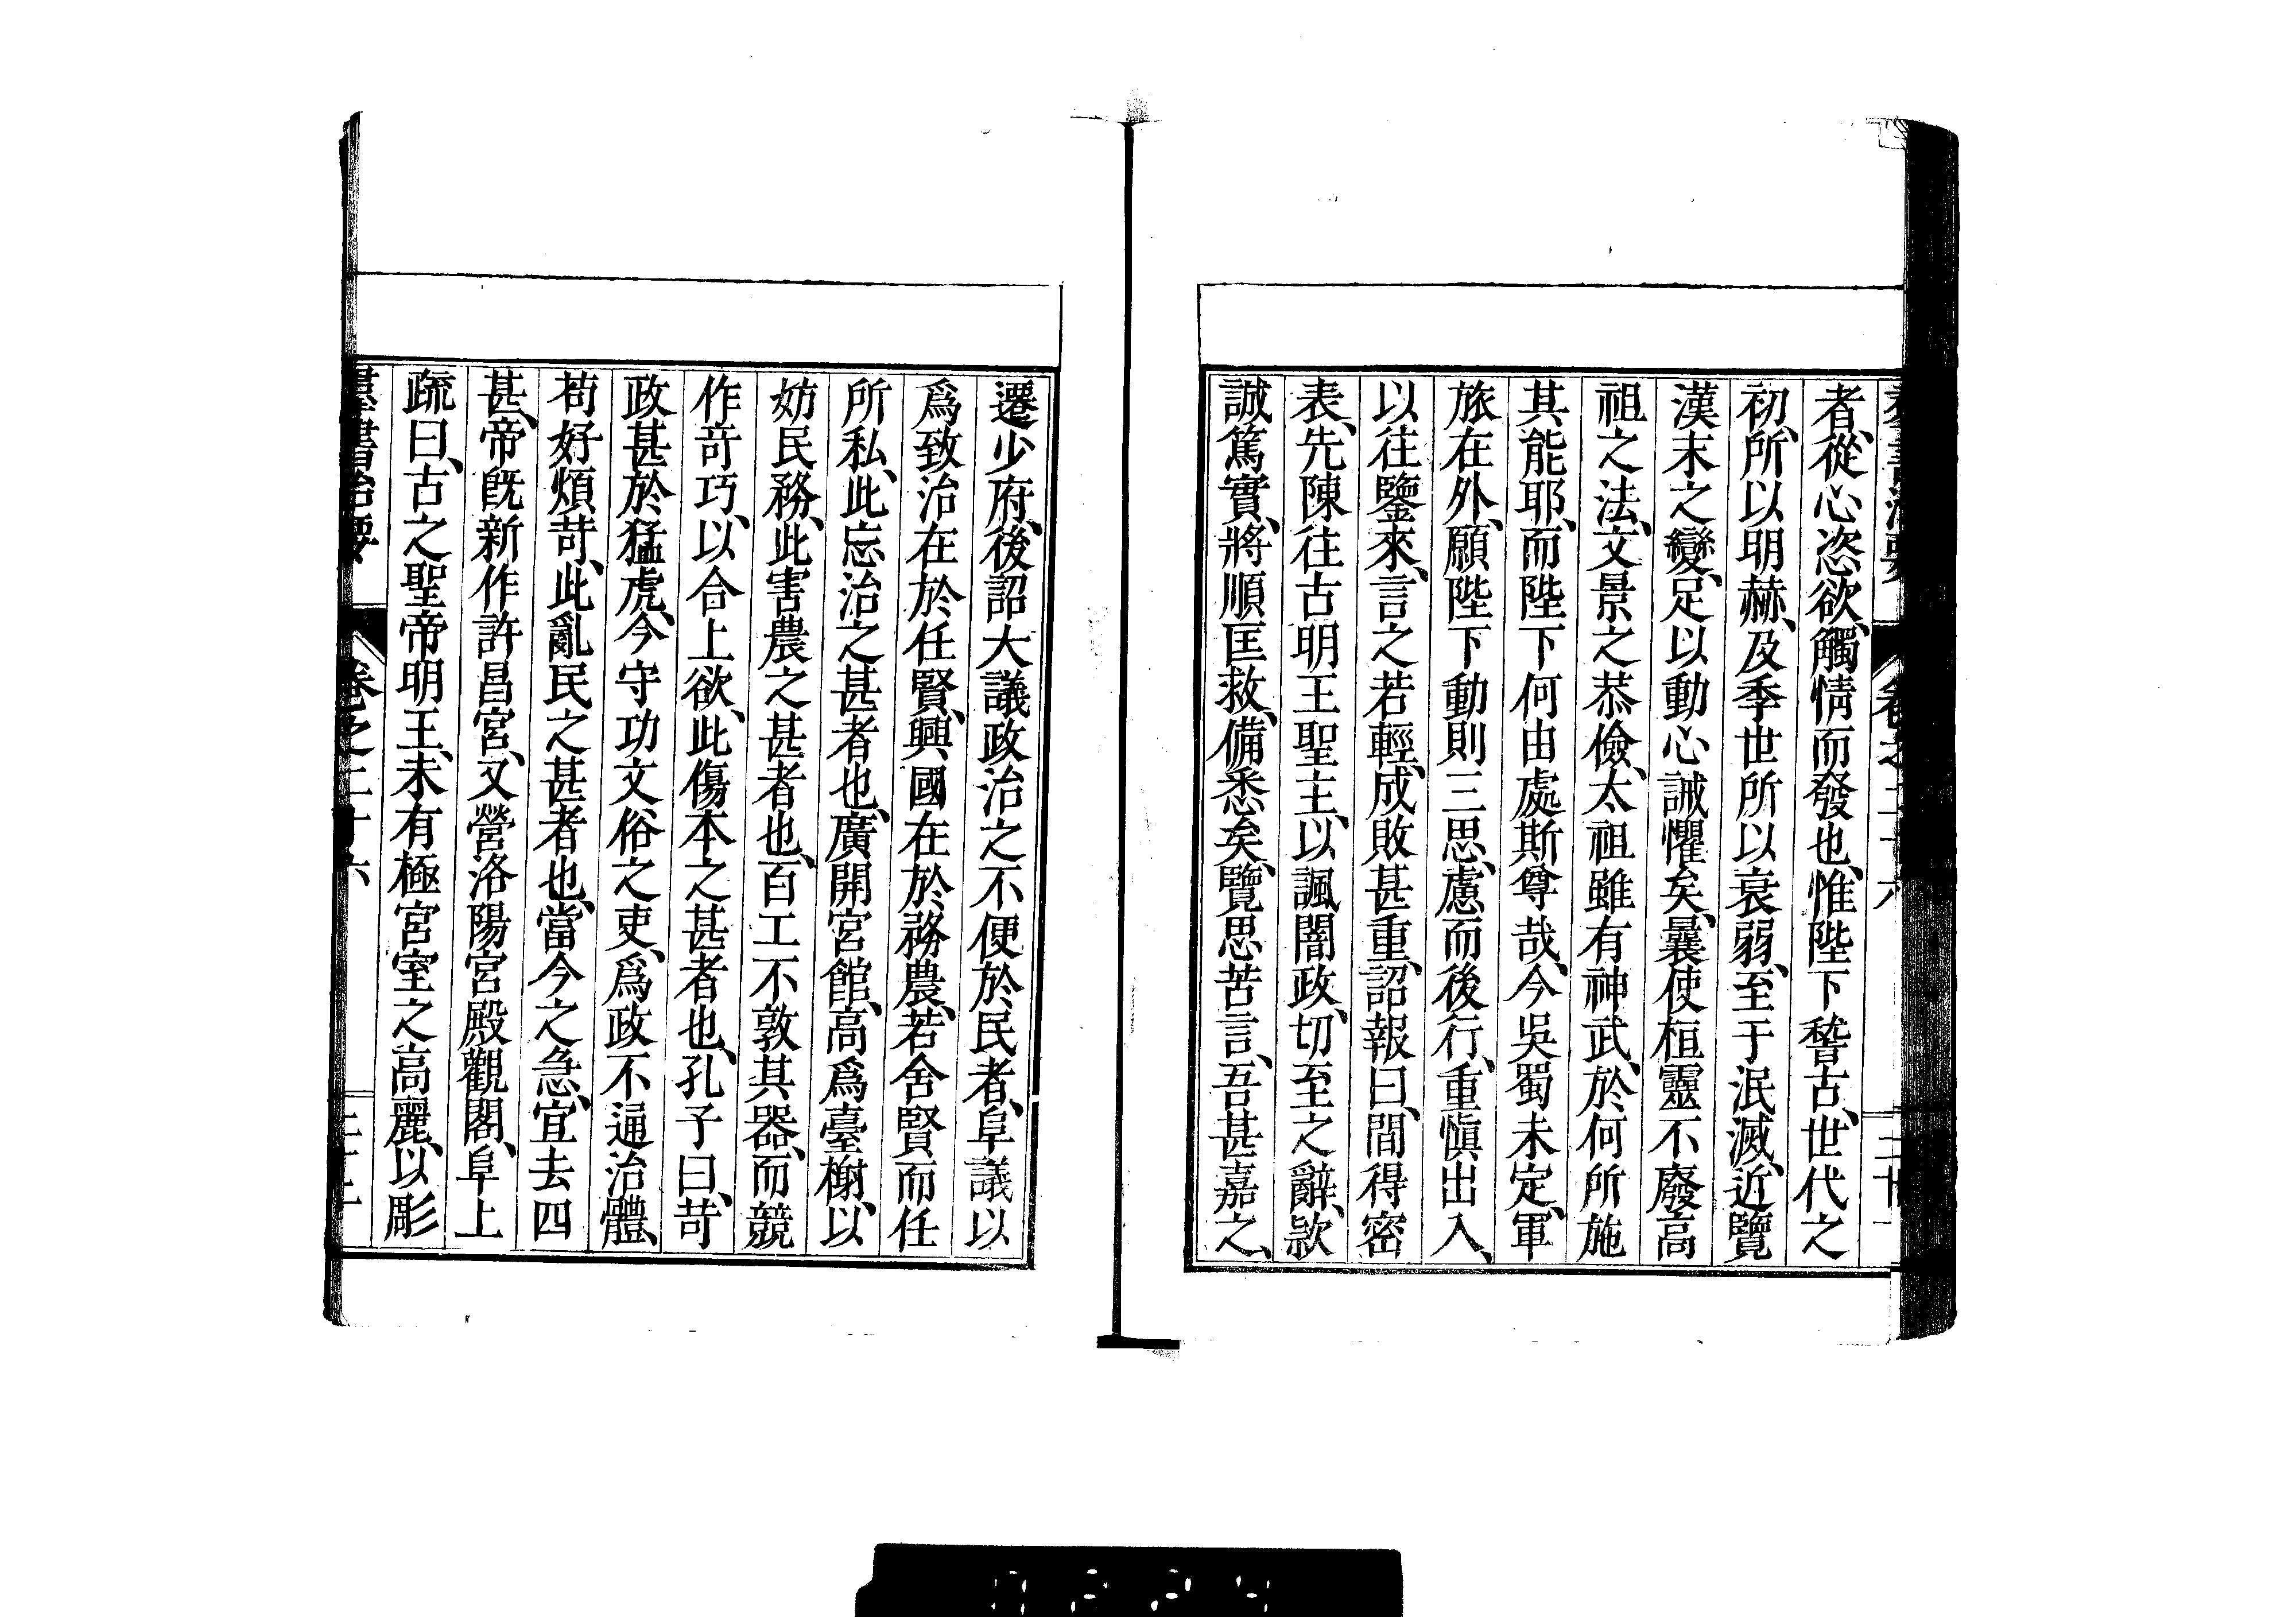 羣書治要 卷之二十六
者、從心恣欲、觸情而發也、惟陛下稽古、世代之
初、所以明赫、及季世所以衰弱、至于泯滅、近覽
漢末之變、足以動心誡懼矣、曩使桓靈不廢高
祖之法、文景之恭儉、太祖雖有神武、於何所施
其能耶、而陛下何由處斯尊哉、今吳蜀未定、軍
旅在外、願陛下動則三思、慮而後行、重愼出入、
以往鑒來、言之若輕、成敗甚重、詔報曰、間得密
表、先陳往古明王聖主、以諷闇政、切至之辭、款
誠篤實、將順匡救、備悉矣、覽思苦言、吾甚嘉之、
遷少府、後詔大議政治之不便於民者、阜議以
爲致治在於任賢、興國在於務農、若舍賢而任
所私、此忘治之甚者也、廣開宮館、高爲臺榭、以
妨民務、此害農之甚者也、百工不敦其器、而競
作奇巧、以合上欲、此傷本之甚者也、孔子曰、苛
政甚於猛虎、今守功文俗之吏、爲政不通治體、
苟好煩苛、此亂民之甚者也、當今之急、宜去四
甚、帝旣新作許昌宮、又營洛陽宮殿觀閣、阜上
疏曰、古之聖帝明王、未有極宮室之高麗、以彫
羣書治要 卷之二十六